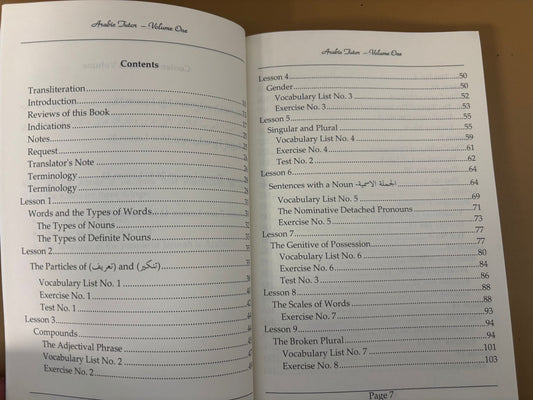 Arabic Tutor – Volume One
Contents
Transliteration
Introduction
Reviews of this Book
Indications
Notes
Request
Translator's Note
Terminology
Terminology
Lesson 1
Words and the Types of Words
The Types of Nouns
The Types of Definite Nouns
Lesson 2
The Particles of (تعريف) and (تنكير)
Vocabulary List No. 1
Exercise No. 1
Test No. 1
Lesson 3
Compounds
The Adjectival Phrase
Vocabulary List No. 2
Exercise No. 2
Arabic Tutor – Volume One
Lesson 4 50
Gender 50
Vocabulary List No. 3 52
Exercise No. 3 53
Lesson 5 55
Singular and Plural 55
Vocabulary List No. 4 59
Exercise No. 4 61
Test No. 2 62
Lesson 6 64
Sentences with a Noun -الجملة الاسمية 64
Vocabulary List No. 5 69
The Nominative Detached Pronouns 71
Exercise No. 5 73
Lesson 7 77
The Genitive of Possession 77
Vocabulary List No. 6 80
Exercise No. 6 84
Test No. 3 86
Lesson 8 88
The Scales of Words 88
Exercise No. 7 93
Lesson 9 94
The Broken Plural 94
Vocabulary List No. 7 101
Exercise No. 8 103
Page 7